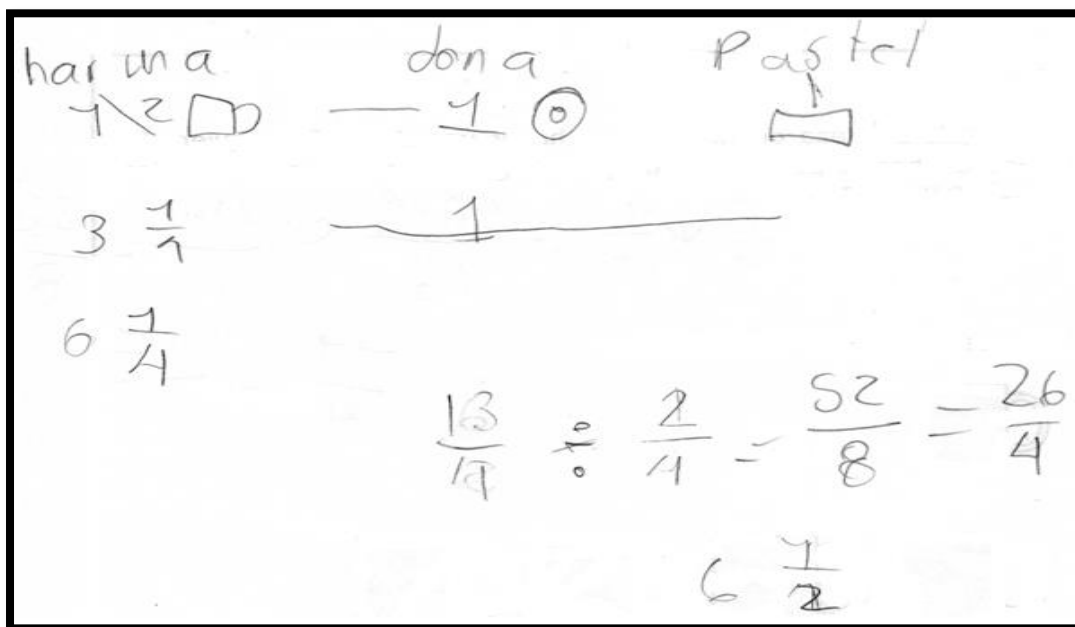 harina dona Pastel
1\2 1
3 1/4 1
6 1/4
13/4 ÷ 2/4 = 52/8 = 26/4
6 1/2